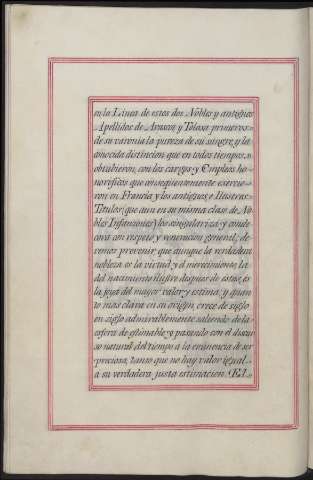 en la Linea de estos dos Nobles y antiguos
Apellidos de Arascot y Tolosa primeros
de su varonia la pureza de su sangre, y la
conocida distincion que en todos tiempos,
obtubieron, con los cargos y Empleos ho-
norificos que consequentemente exercie-
ron en Francia, y los antiguos, e Ilustres
Titulos, que aun en su misma clase de No-
bles Infanzones los singulariza y conde-
cora con respeto y veneracion general; de-
vemos prevenir que aunque la verdadera
nobleza es la virtud, y el merecimiento, la
del nacimiento ilustre despues de estos, es
la joya del mayor valor y estima, y quan-
to mas clara en su origen crece de siglo
en siglo admirablemente saliendo de la
esfera de estimable y pasando con el discur-
so natural del tiempo a la eminencia de ser
preciosa, tanto que no hay valor igual
a su verdadera justa estimacion. El